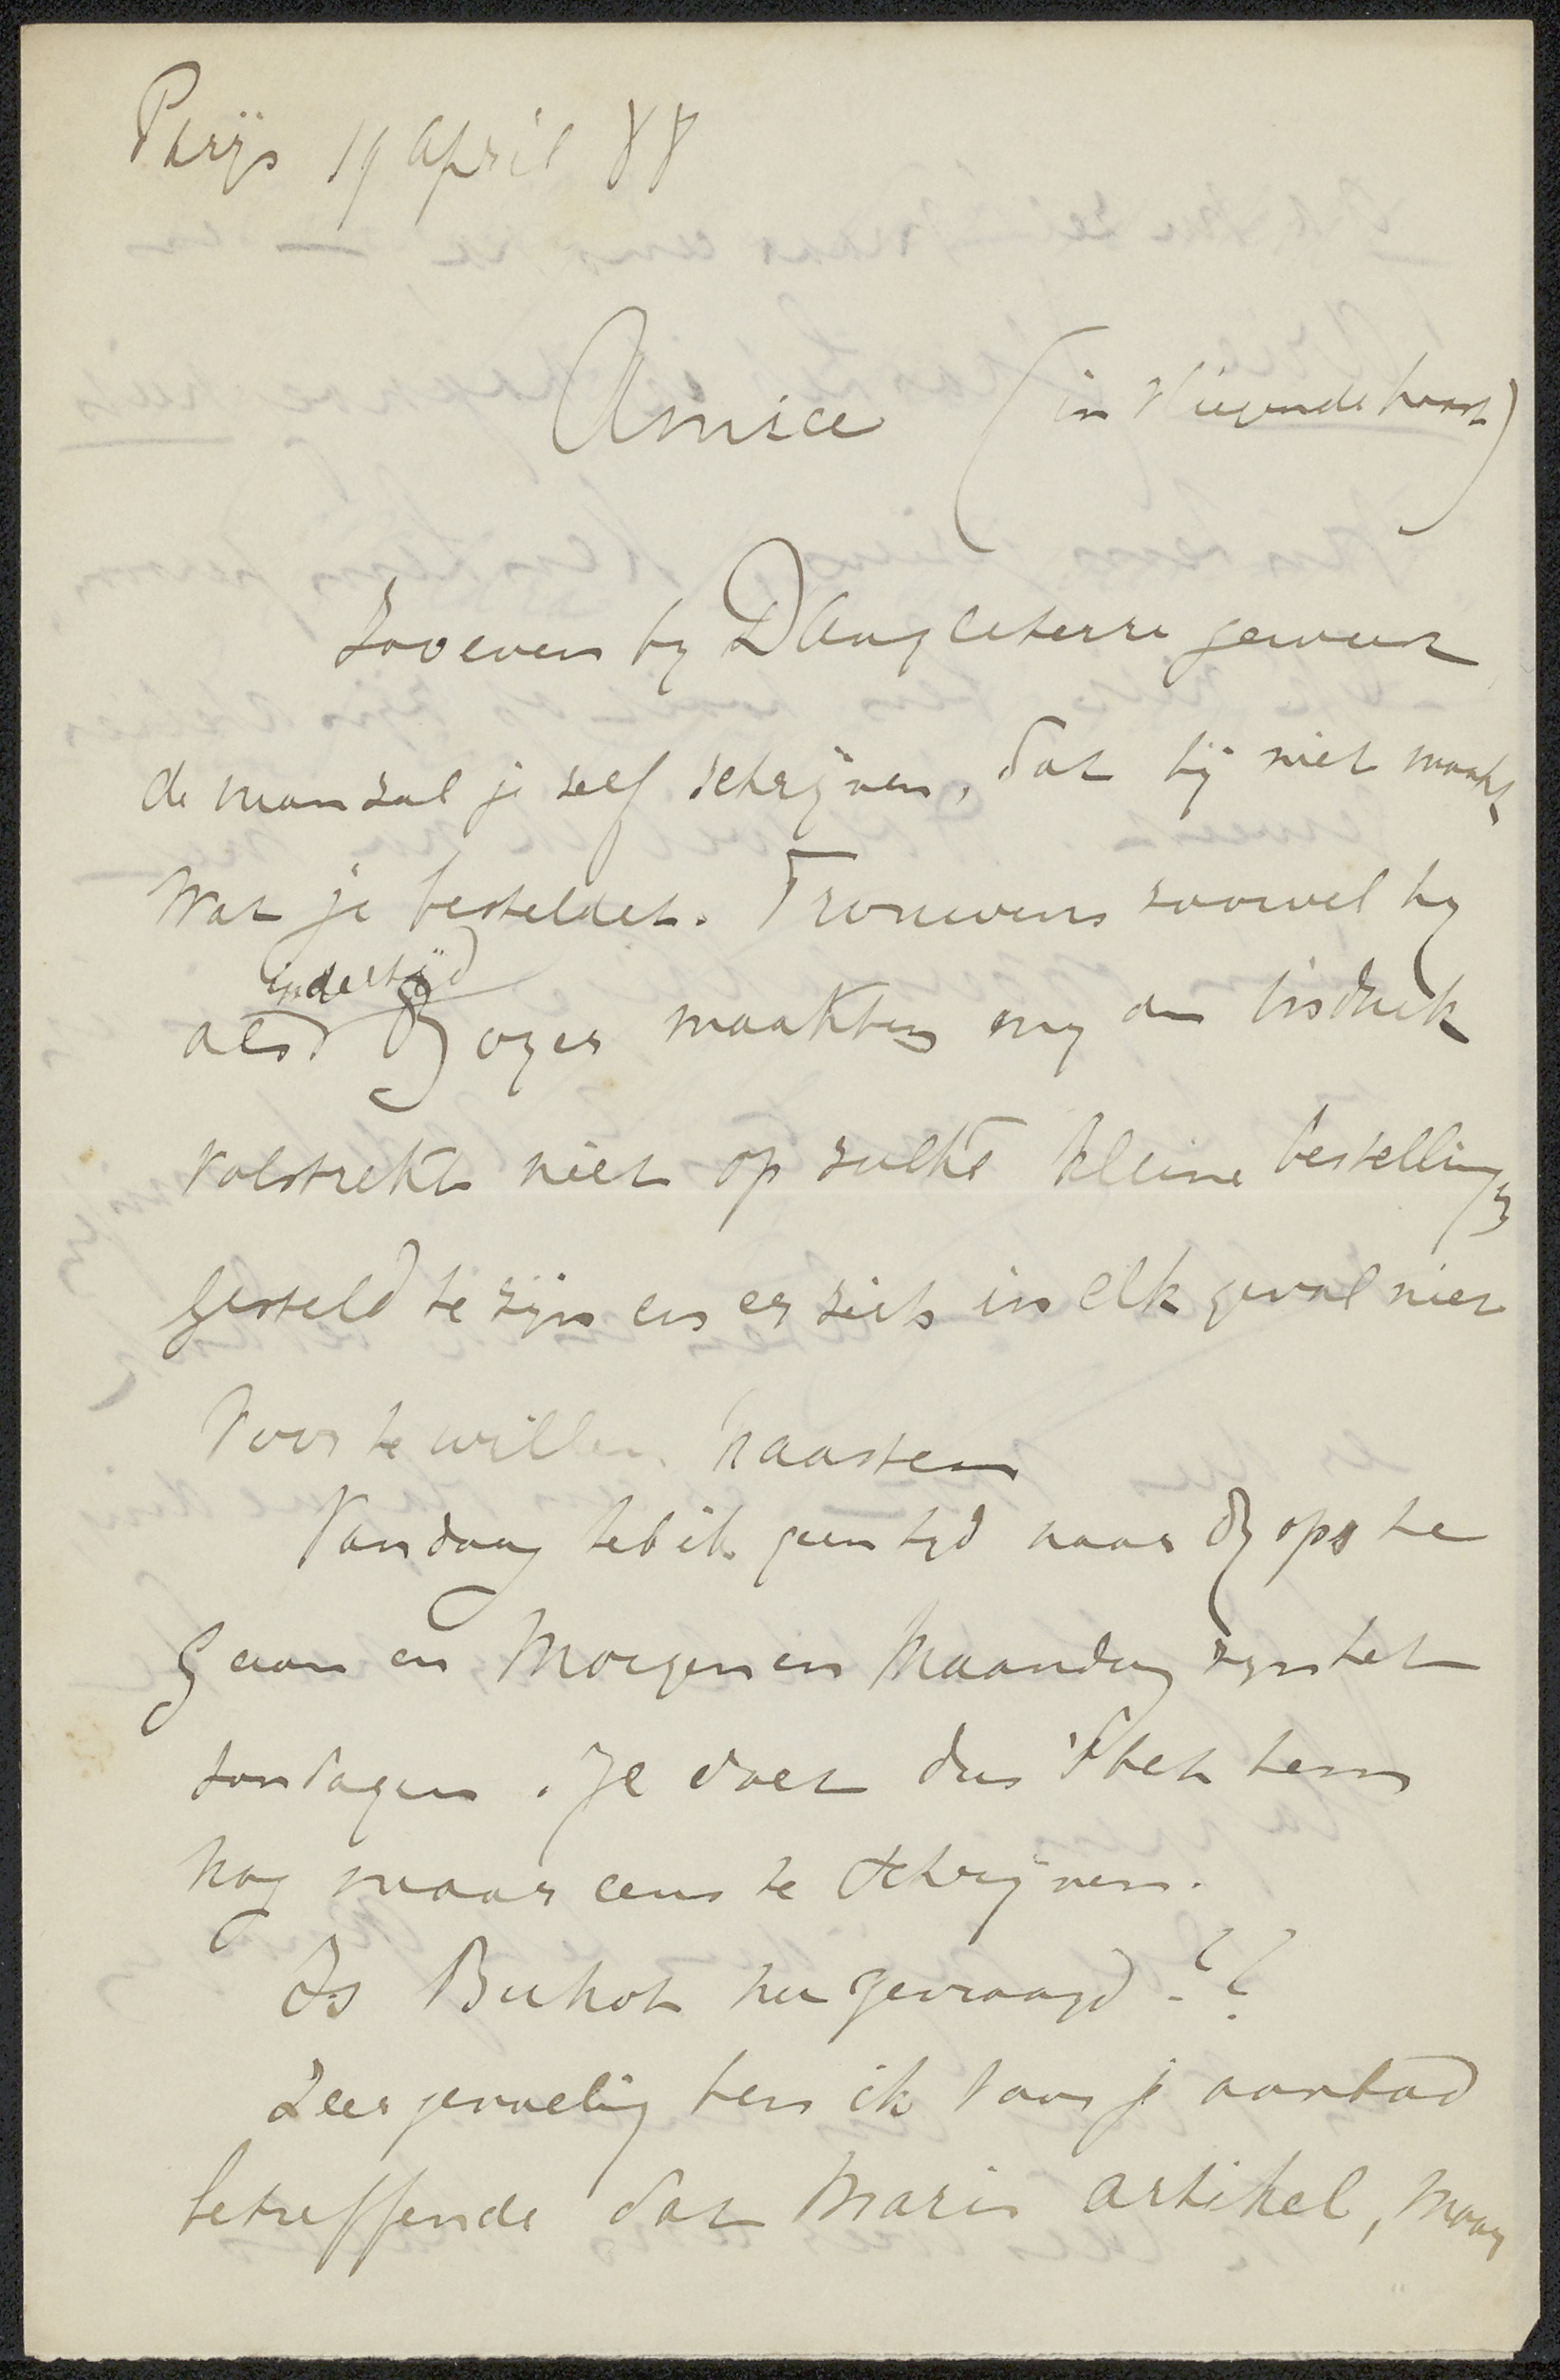 Parijs 19 april 88
Amice (in vliegende haast)
Zooeven bij Dangleterre geweest
de man zal je zelf schrijven, dat hij niet maakt,
wat je besteldet. Trouwens zoowel hij
als indertijd Boyer maakten mij den indruk
volstrekt niet op zulke kleine bestellingen
gesteld te zijn en er zich in elk geval niet
voor te willen haasten
Vandaag heb ik geen tijd naar op te
gaan en morgen en Maandag zijn het
zondagen. Je doet dus 't best hem
nog maar eens te schrijven.
Is Buhot nu gevraagd??
Zeer gevoelig ben ik voor je aanbod
betreffende dat Maris artikel, maar